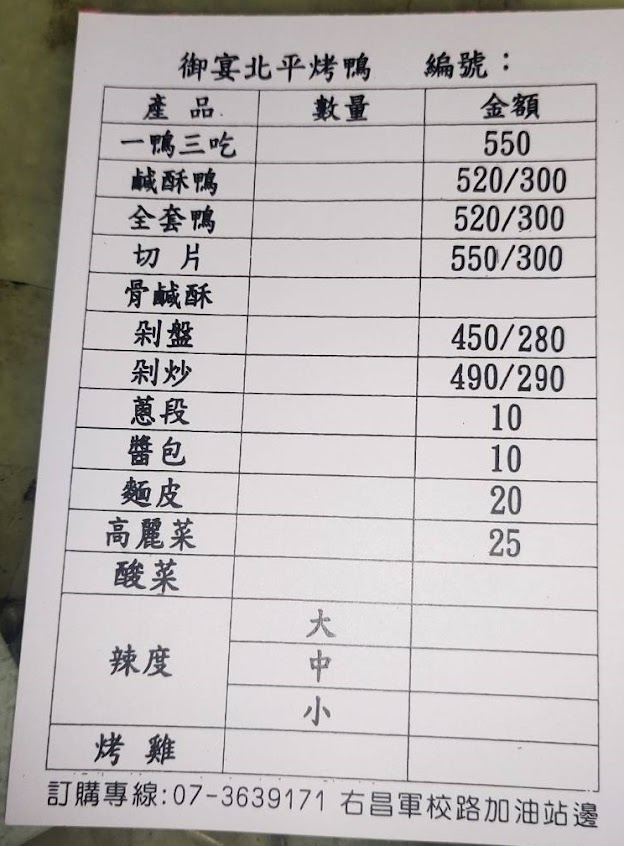 御宴北平烤鴨 編號：
產品 數量 金額
一鴨三吃 550
鹹酥鴨 520/300
全套鴨 520/300
切片 550/300
骨鹹酥
剁盤 450/280
剁炒 490/290
蔥段 10
醬包 10
麵皮 20
高麗菜 25
酸菜
辣度 大
中
小
烤雞
訂購專線:07-3639171 右昌軍校路加油站邊